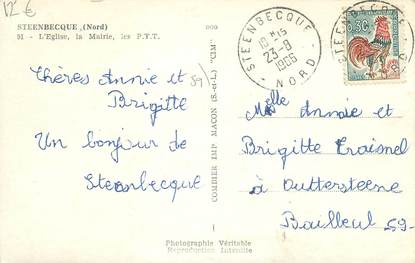 12 €
STEENBECQUE (Nord)
91 - L'Eglise, la Mairie, les P.T.T.
Chères Annie et
Brigitte
Un bonjour de
Steenbecque
COMBIER IMP. MACON (S.-et-L.) "CIM"
STEENBECQUE
10 H 15
23-8
1966
NORD
0,50
STEENBECQUE
Melle Annie et
Brigitte Traisnel
à Outtersteene
Bailleul 59-
Photographie Véritable
Reproduction Interdite